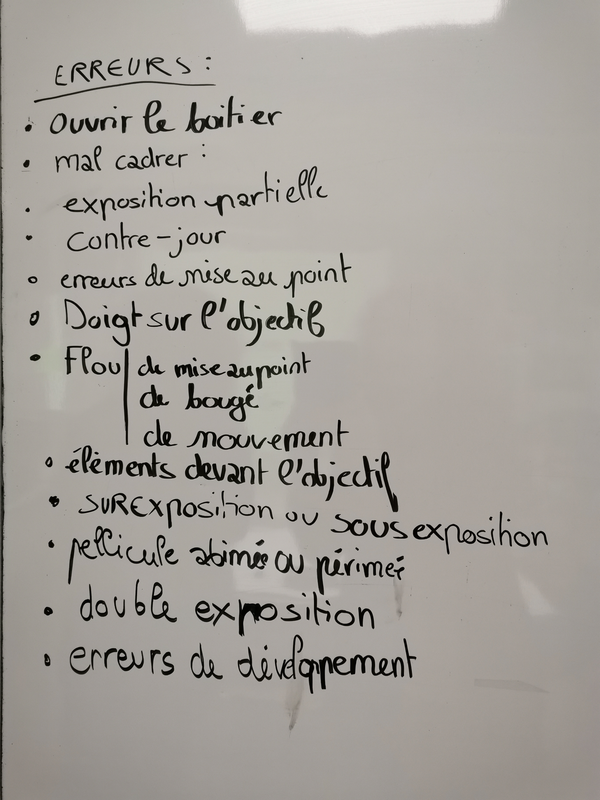 ERREURS :
• Ouvrir le boitier
• mal cadrer :
• exposition partielle
• Contre-jour
• erreurs de mise au point
• Doigt sur l'objectif
• Flou de mise au point
de bougé
de mouvement
• éléments devant l'objectif
• SUREXposition ou sousexposition
• pellicule abimée ou périmée
• double exposition
• erreurs de développement